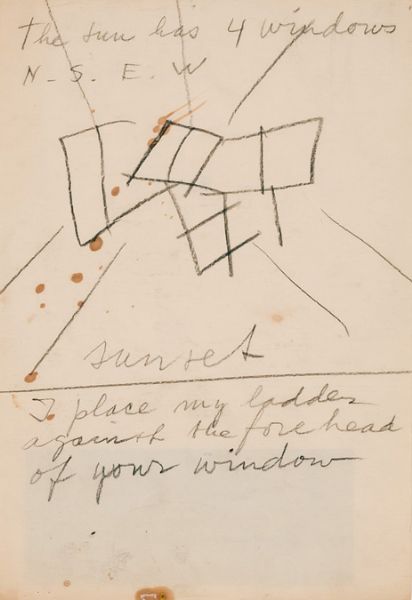 The sun has 4 windows
N - S. E. W
sunset
I place my ladder
against the forehead
of your window